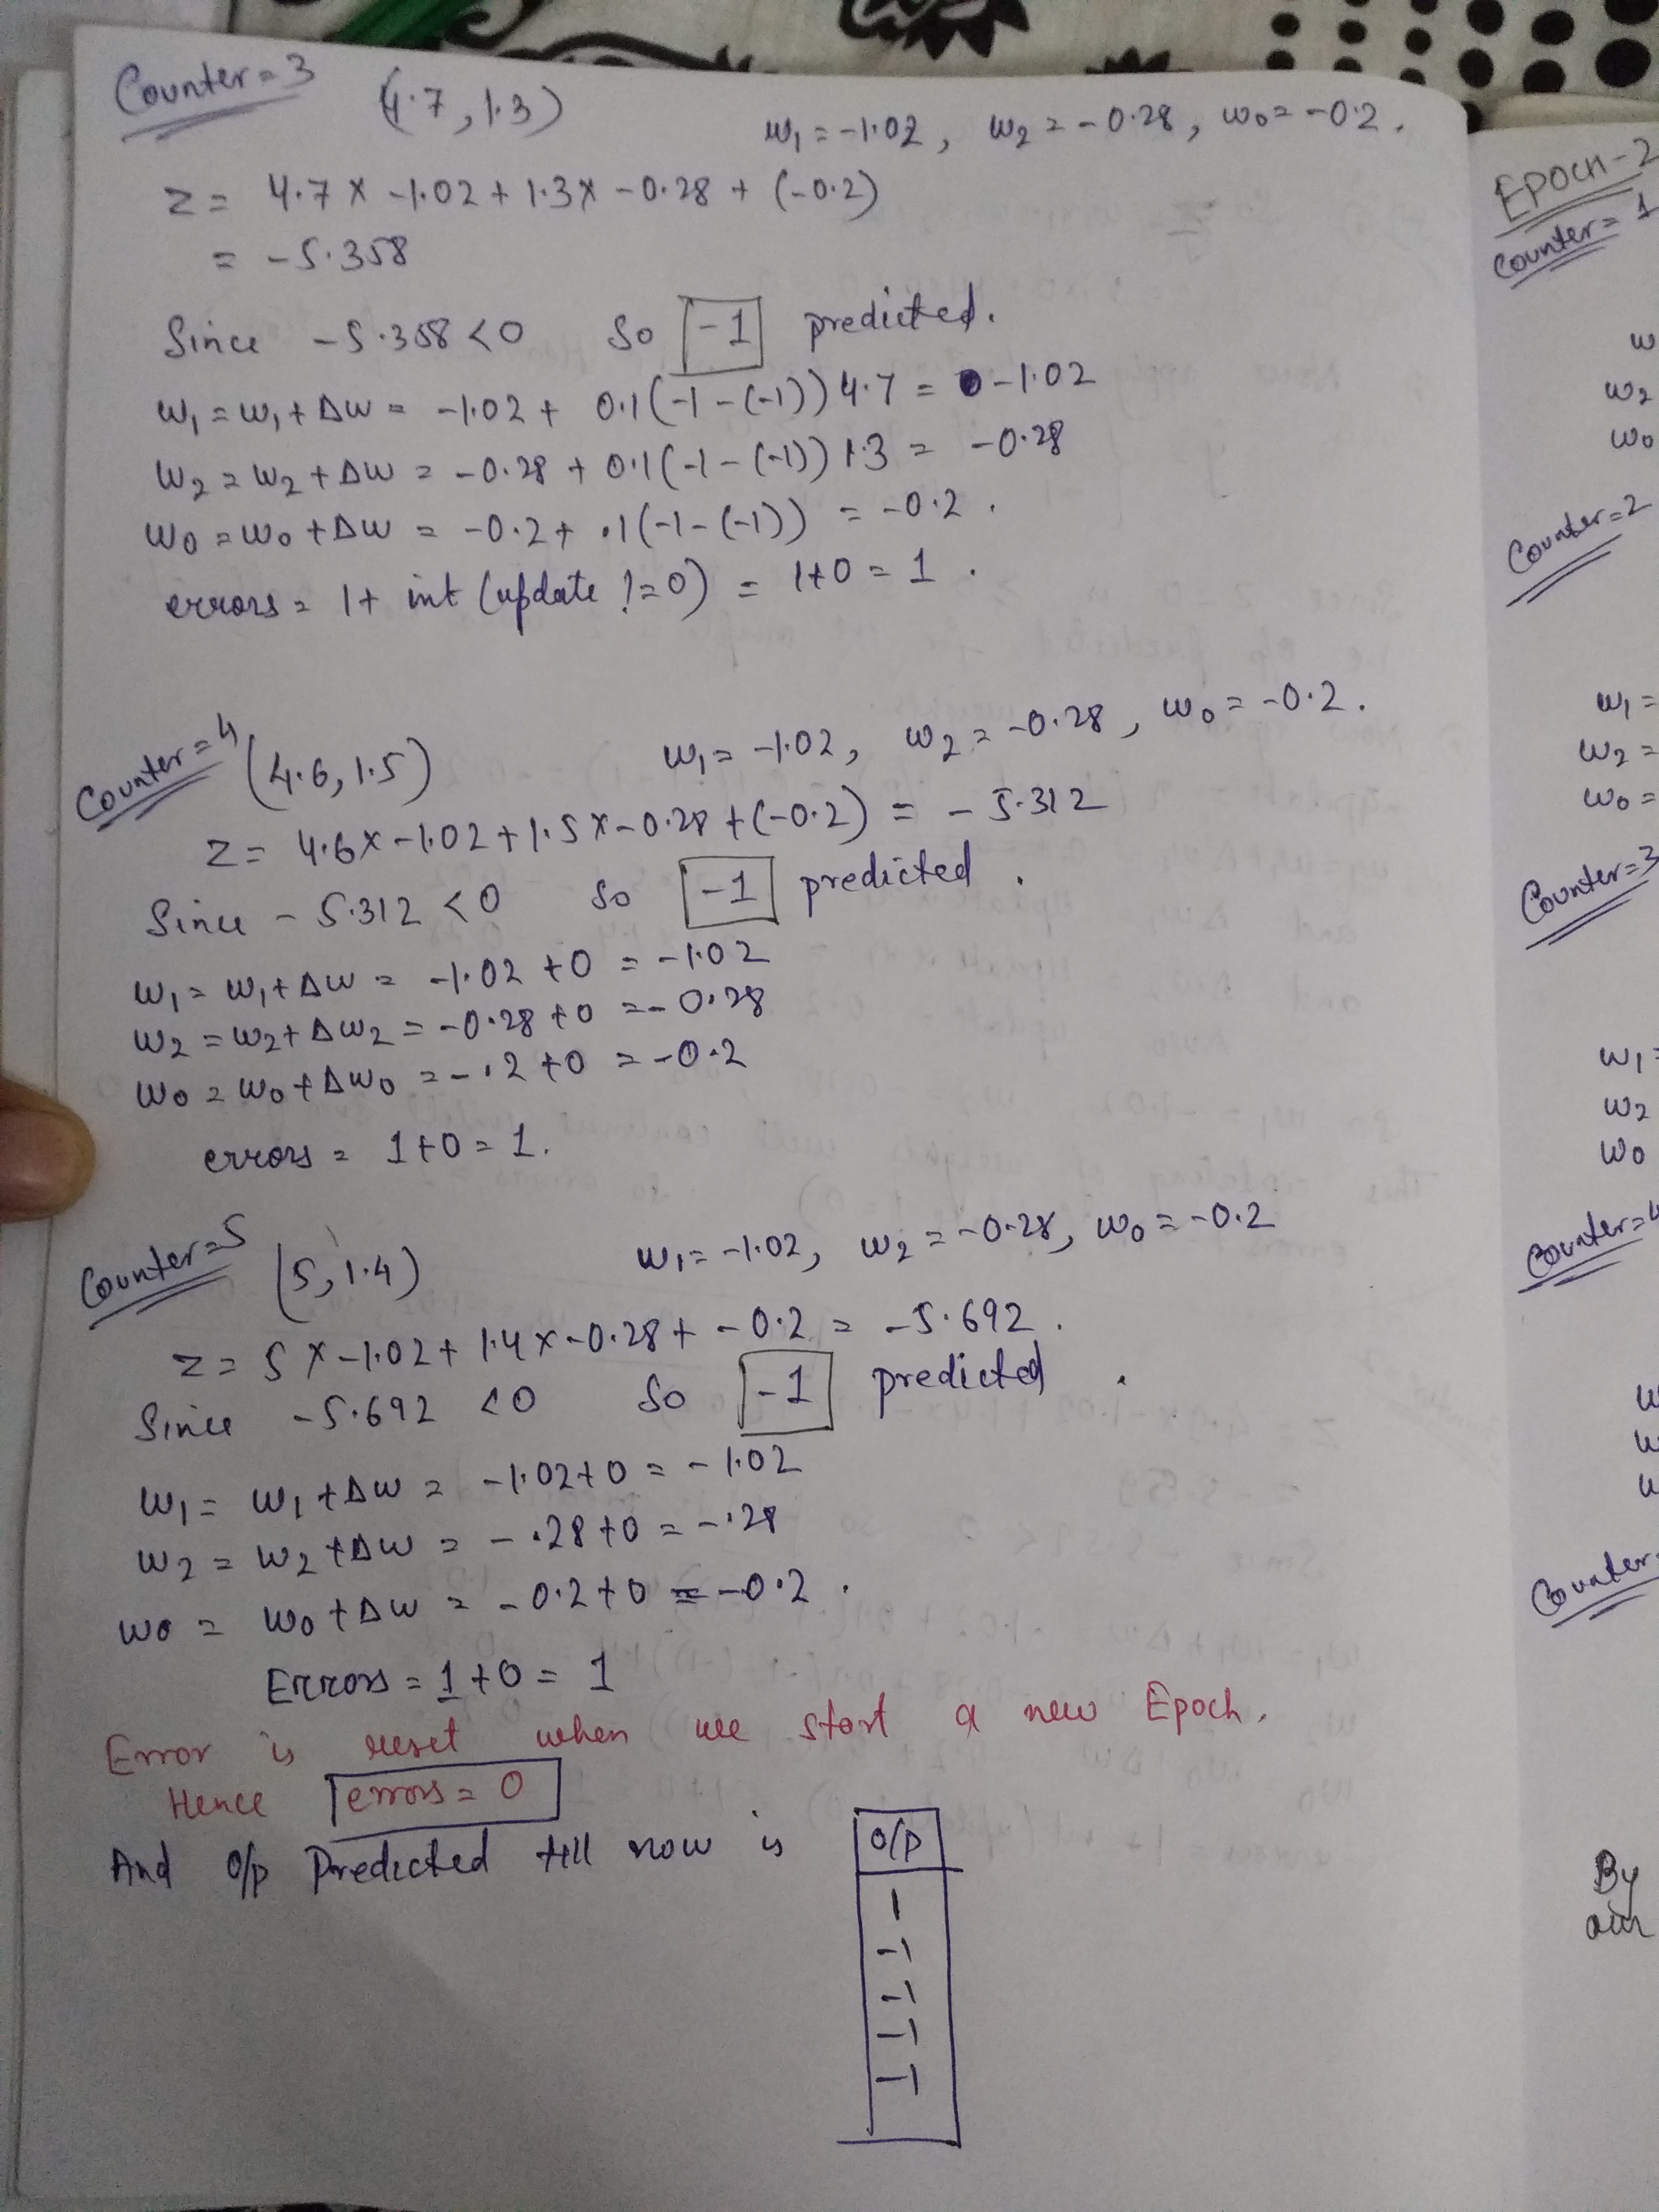 Counter=3
(4.7, 1.3)
w₁ = -1.02, w₂ = -0.28, w₀ = -0.2.
z = 4.7 x -1.02 + 1.3x -0.28 + (-0.2)
= -5.358
Since -5.358 < 0 So -1 predicted.
w₁ = w₁ + Δw = -1.02 + 0.1(-1-(-1))4.7 = -1.02
w₂ = w₂ + Δw = -0.28 + 0.1(-1-(-1))1.3 = -0.28
w₀ = w₀ + Δw = -0.2 + .1(-1-(-1)) = -0.2.
errors = 1+ int (update != 0) = 1+0 = 1.
Counter=4
(4.6, 1.5)
w₁ = -1.02, w₂ = -0.28, w₀ = -0.2.
z = 4.6x -1.02 + 1.5x -0.28 + (-0.2) = -5.312
Since -5.312 < 0 So -1 predicted.
w₁ = w₁ + Δw = -1.02 + 0 = -1.02
w₂ = w₂ + Δw₂ = -0.28 + 0 = -0.28
w₀ = w₀ + Δw₀ = -.2 + 0 = -0.2
errors = 1+0 = 1.
Counter=5
(5, 1.4)
w₁ = -1.02, w₂ = -0.28, w₀ = -0.2
z = 5 x -1.02 + 1.4 x -0.28 + -0.2 = -5.692.
Since -5.692 < 0 So -1 predicted.
w₁ = w₁ + Δw = -1.02 + 0 = -1.02
w₂ = w₂ + Δw = -.28 + 0 = -.28
w₀ = w₀ + Δw = -0.2 + 0 = -0.2.
Errors = 1+0 = 1
Error is reset when we start a new Epoch.
Hence errors = 0
And o/p Predicted till now is
O/P
EPOCH-2
Counter=1
w
w₂
w₀
Counter=2
w₁ =
w₂ =
w₀ =
Counter=3
w₁ =
w₂
w₀
Counter=4
w
w
w
Counter
By
our